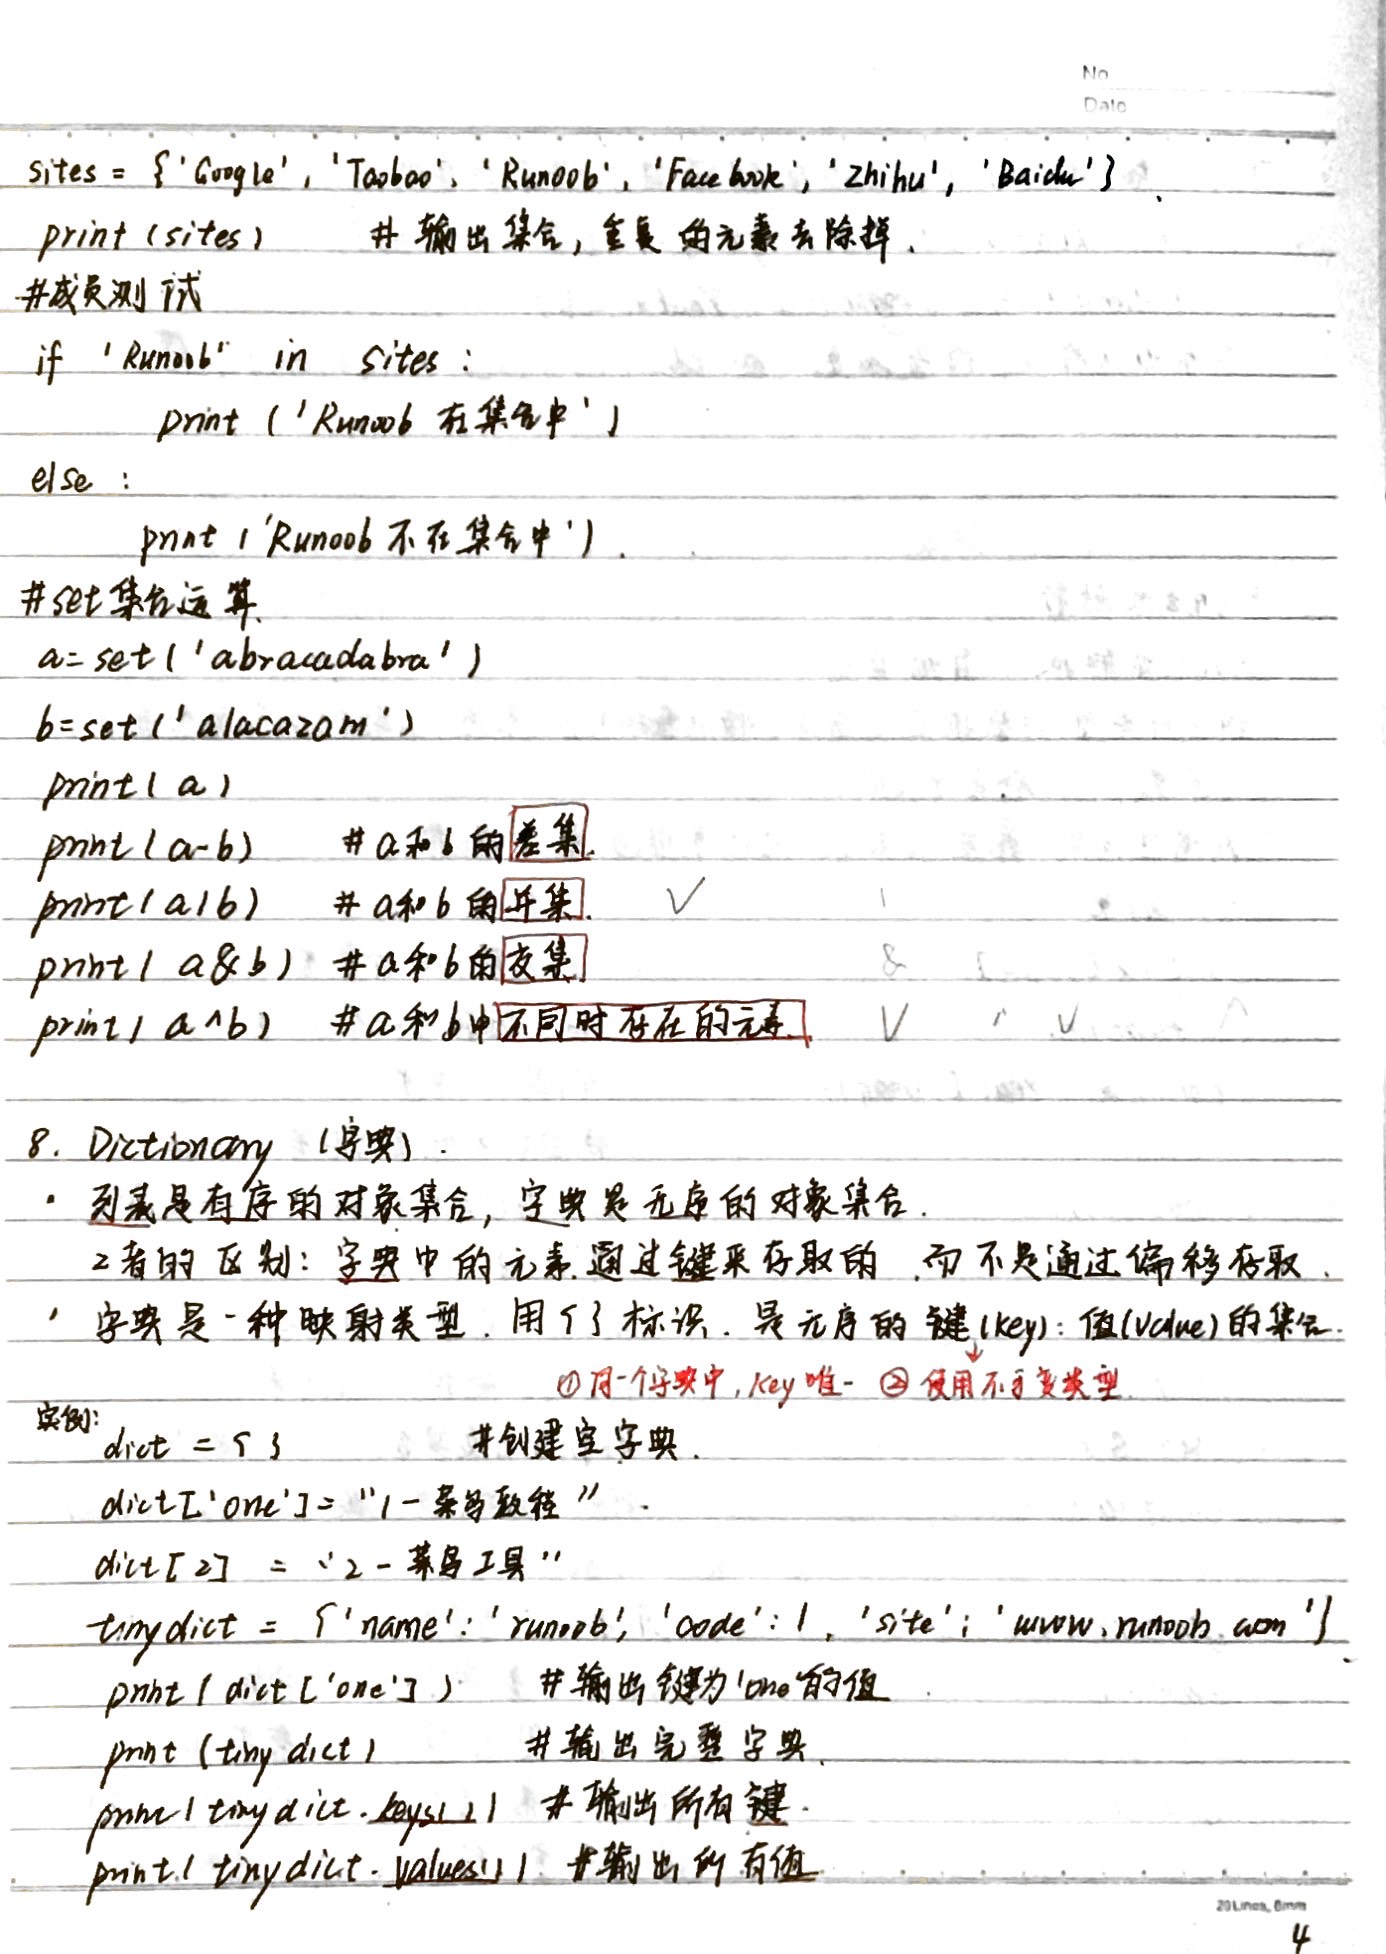 No
Date
sites = {'Google', 'Taobao', 'Runoob', 'Facebook', 'Zhihu', 'Baidu'}
print(sites) # 输出集合,重复的元素去除掉.
#成员测试
if 'Runoob' in sites:
print('Runoob 在集合中')
else:
print('Runoob 不在集合中').
#set集合运算.
a=set('abracadabra')
b=set('alacazam')
print(a)
print(a-b) # a和b的差集.
print(a|b) # a和b的并集. √
print(a&b) # a和b的交集
print(a^b) # a和b中不同时存在的元素.
8. Dictionary (字典).
· 列表是有序的对象集合, 字典是无序的对象集合.
2者的区别: 字典中的元素通过键来存取的,而不是通过偏移存取.
· 字典是一种映射类型.用{}标识.是无序的键(key):值(value)的集合.
①同一个字典中,key唯一 ②使用不可变类型.
实例:
dict = {} #创建空字典.
dict['one']= "1-菜鸟教程"
dict[2] = "2-菜鸟工具"
tinydict = {'name':'runoob', 'code':1, 'site':'www.runoob.com'}
print(dict['one']) #输出键为'one'的值
print(tinydict) #输出完整字典.
print(tinydict.keys()) #输出所有键.
print(tinydict.values()) #输出所有值
20Lines, 8mm
4